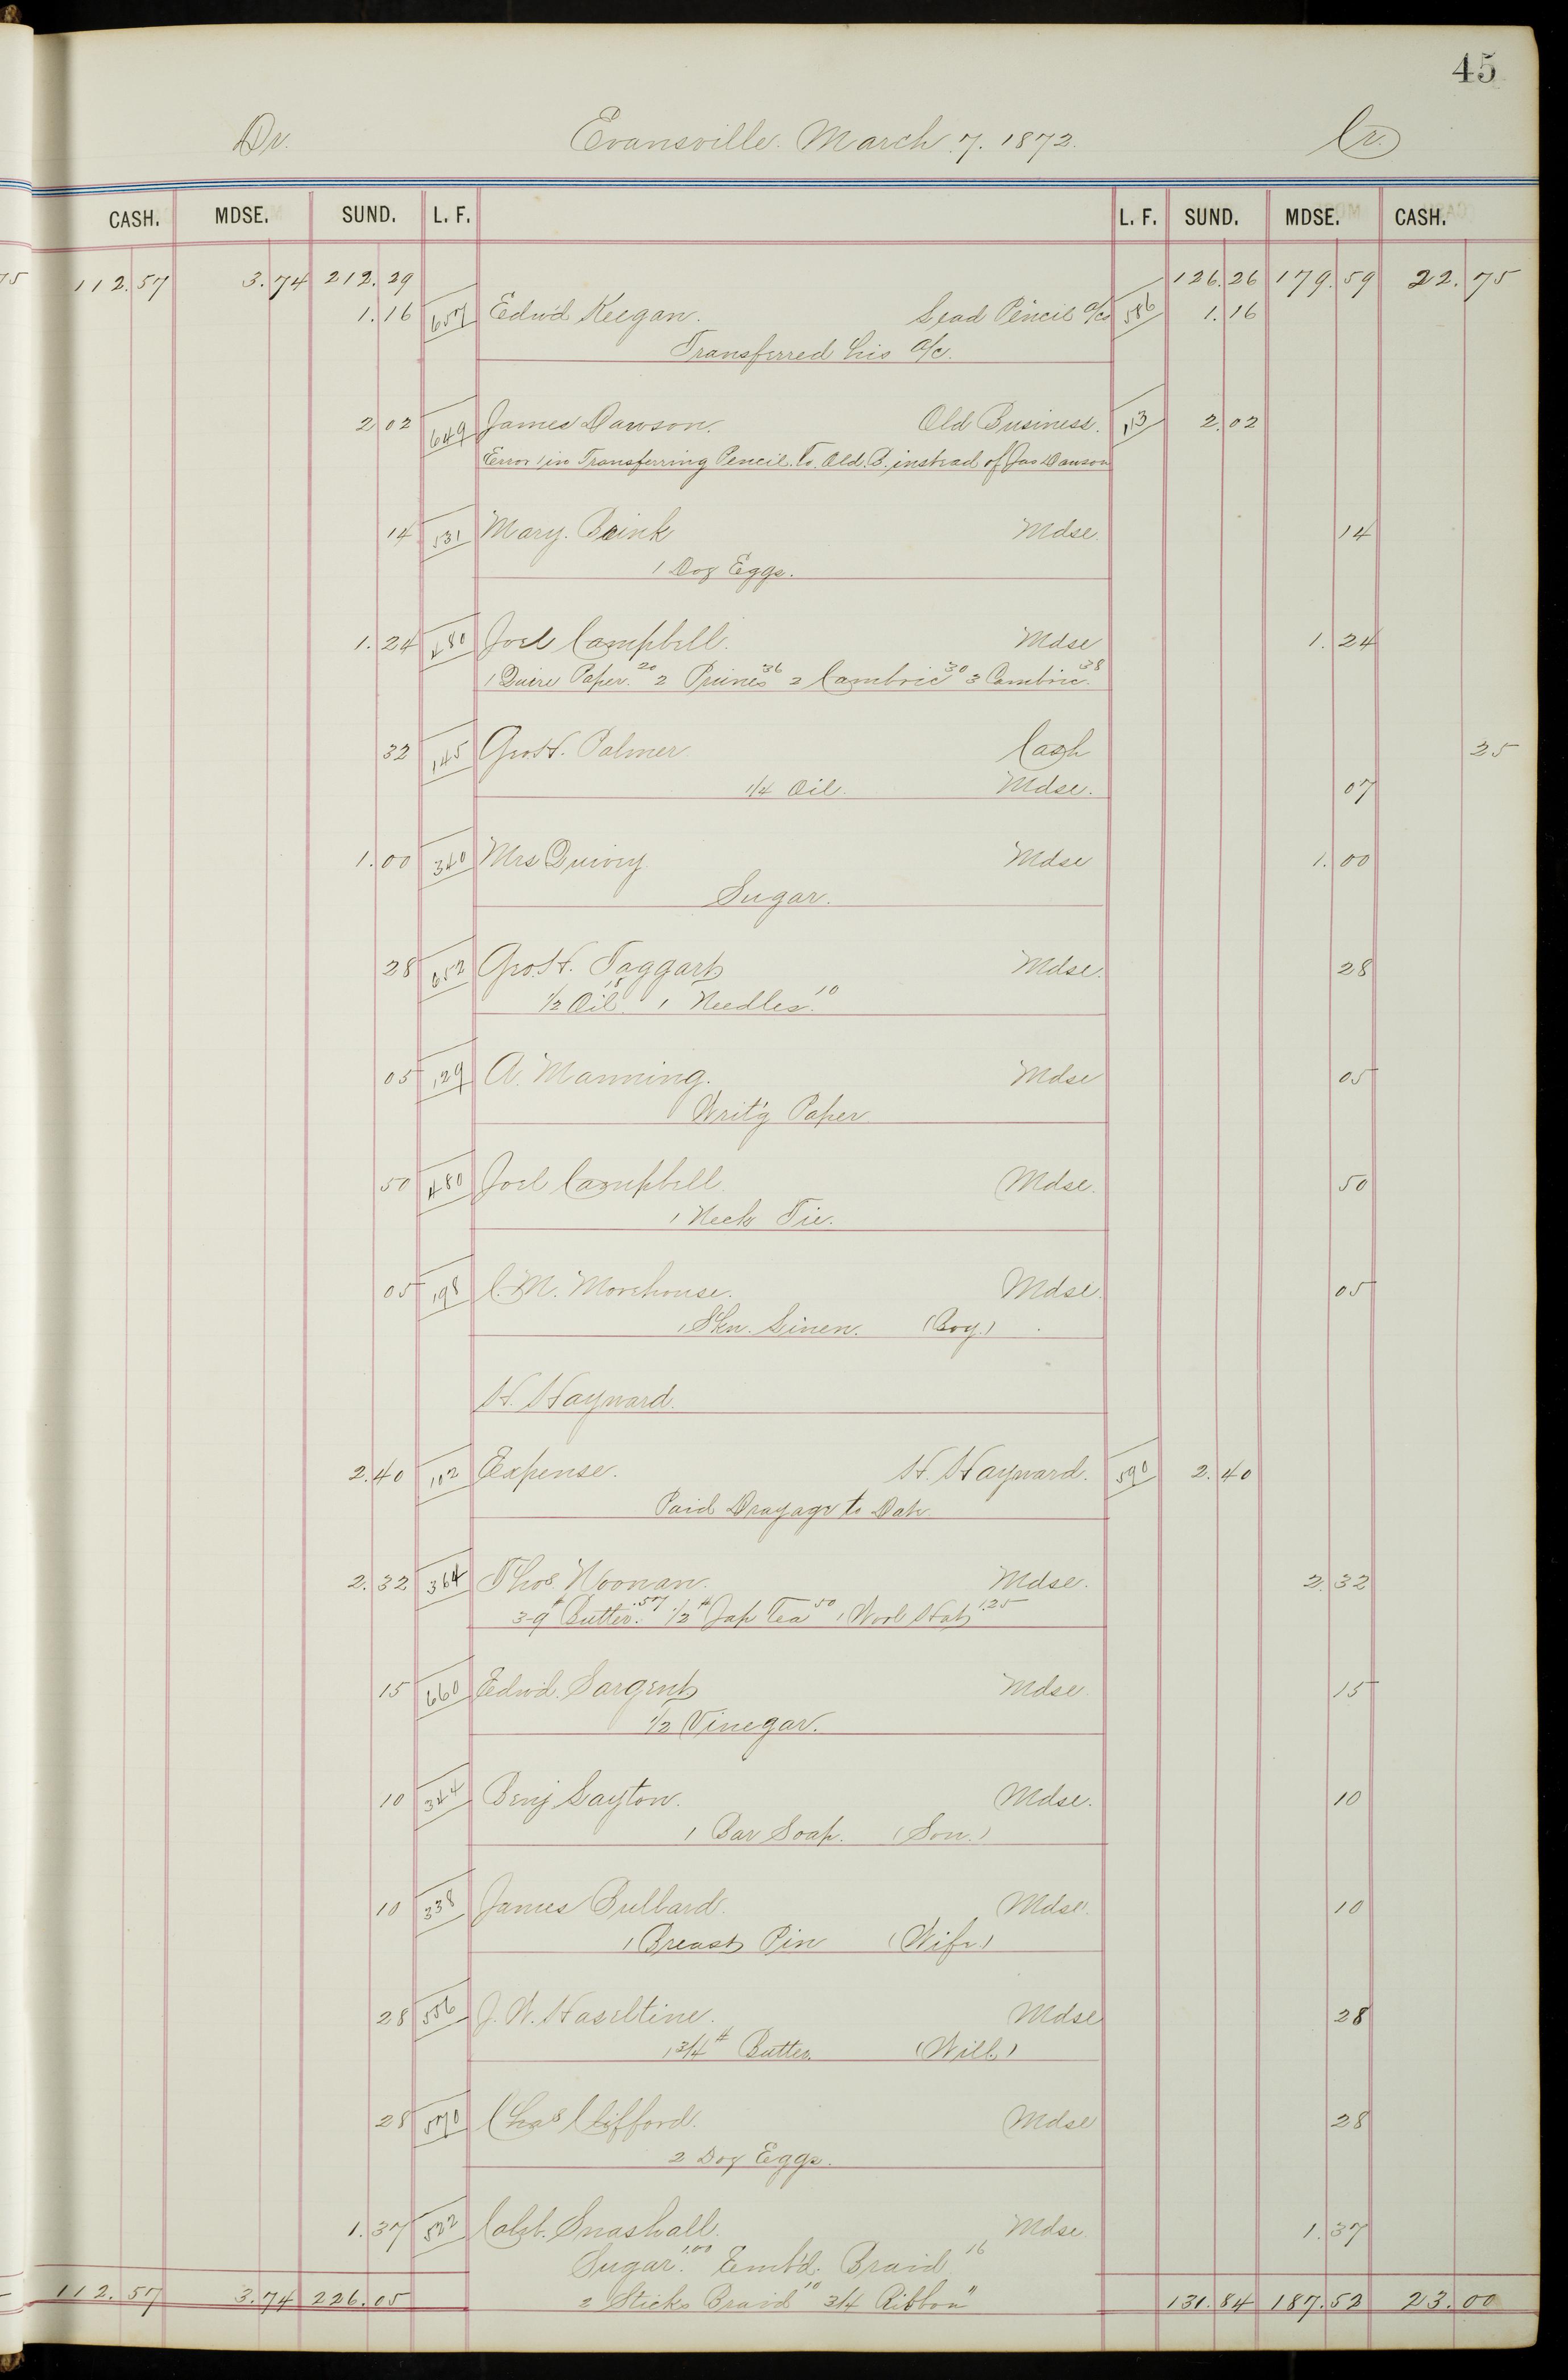 45
Dr. Evansville. March 7. 1872. Cr.
CASH. MDSE. SUND. L. F. L. F. SUND. MDSE. CASH.
75 112.57 3.74 212.29 126.26 179.59 22.75
1.16 657 Edw'd Keegan. Lead Pencil a/c 586 1.16
Transferred his a/c.
2 02 649 James Dawson. Old Business. 113 2.02
Error in Transferring Pencil. To. Old. B. instead of Jas Dawson
14 531 Mary. Brink Mdse. 14
1 Doz Eggs.
1.24 480 Joel Campbell. Mdse 1.24
1 Quire Paper. 20 2 Prunes 36 2 Cambric 30 3 Cambric. 38
32 145 Geo. H. Palmer Cash 25
1/4 Oil. Mdse. 07
1.00 340 Mrs Quivey Mdse 1.00
Sugar.
28 652 Geo. H. Taggart Mdse. 28
1/2 Oil 18 1 Needles. 10
05 129 A. Manning. Mdse 05
Writ'g Paper
50 480 Joel Campbell Mdse. 50
1 Neck Tie.
05 198 C. M. Morehouse. Mdse. 05
1 Skn. Linen. (Boy.)
H. Hayward.
2.40 102 Expense. H. Hayward. 590 2.40
Paid Drayage to Date
2.32 364 Thos Noonan. Mdse. 2.32
3-9 # Butter. .57 1/2 # Jap Tea 50 1 Wool Hat 1.25
15 660 Edw'd. Sargent Mdse. 15
1/2 Vinegar.
10 344 Benj Layton. Mdse. 10
1 Bar Soap. (Son.)
10 338 James Bullard. Mdse. 10
1 Breast Pin (Wife)
28 556 J. W. Haseltine. Mdse 28
1 3/4 # Butter. (Will.)
28 570 Chas Clifford. Mdse 28
2 Doz Eggs.
1.37 522 Calvt. Snashall. Mdse 1.37
Sugar. 1.00 Emb'd. Braid 16
2 Sticks Braid 10 3/4 Ribbon 11
112.57 3.74 226.05 131.84 187.52 23.00